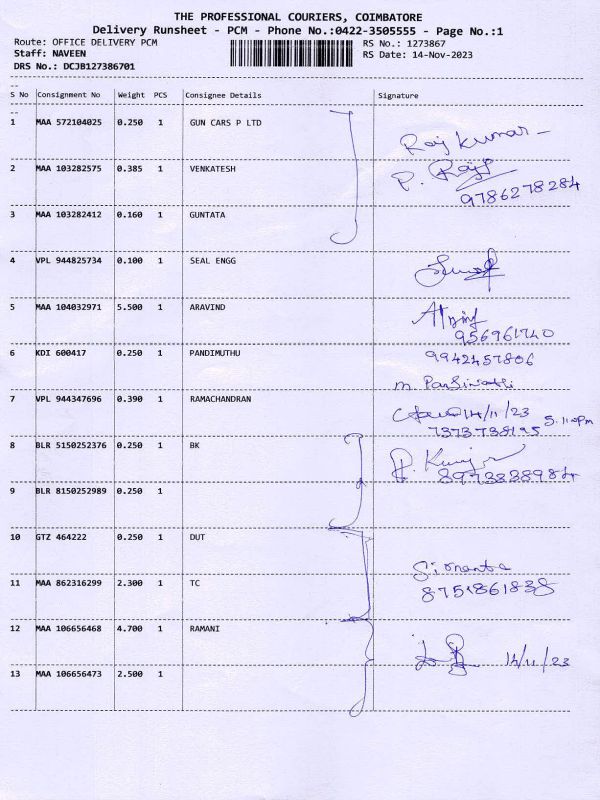 THE PROFESSIONAL COURIERS, COIMBATORE
Delivery Runsheet - PCM - Phone No.:0422-3505555 - Page No.:1
Route: OFFICE DELIVERY PCM RS No.: 1273867
Staff: NAVEEN RS Date: 14-Nov-2023
DRS No.: DCJB127386701
S No Consignment No Weight PCS Consignee Details Signature
1 MAA 572104025 0.250 1 GUN CARS P LTD Raj kumar
2 MAA 103282575 0.385 1 VENKATESH P. Raj
9786278284
3 MAA 103282412 0.160 1 GUNTATA
4 VPL 944825734 0.100 1 SEAL ENGG
5 MAA 104032971 5.500 1 ARAVIND
956961740
6 KDI 600417 0.250 1 PANDIMUTHU 9942457806
m.
7 VPL 944347696 0.390 1 RAMACHANDRAN 14/11/23
7373738195
8 BLR 5150252376 0.250 1 BK
8973838984
9 BLR 8150252989 0.250 1
10 GTZ 464222 0.250 1 DUT
11 MAA 862316299 2.300 1 TC 8751861838
12 MAA 106656468 4.700 1 RAMANI 14/11/23
13 MAA 106656473 2.500 1